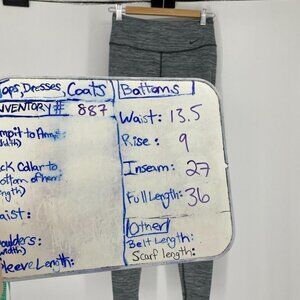 Tops, Dresses, Coats
INVENTORY # 887
mpit to Armpit:
(width)
ck Collar to
ottom of hem:
ngth)
aist:
oulders:
(width)
leeve Length:
Bottoms
Waist: 13.5
Rise: 9
Inseam: 27
Full Length: 36
Other
Belt Length:
Scarf length: